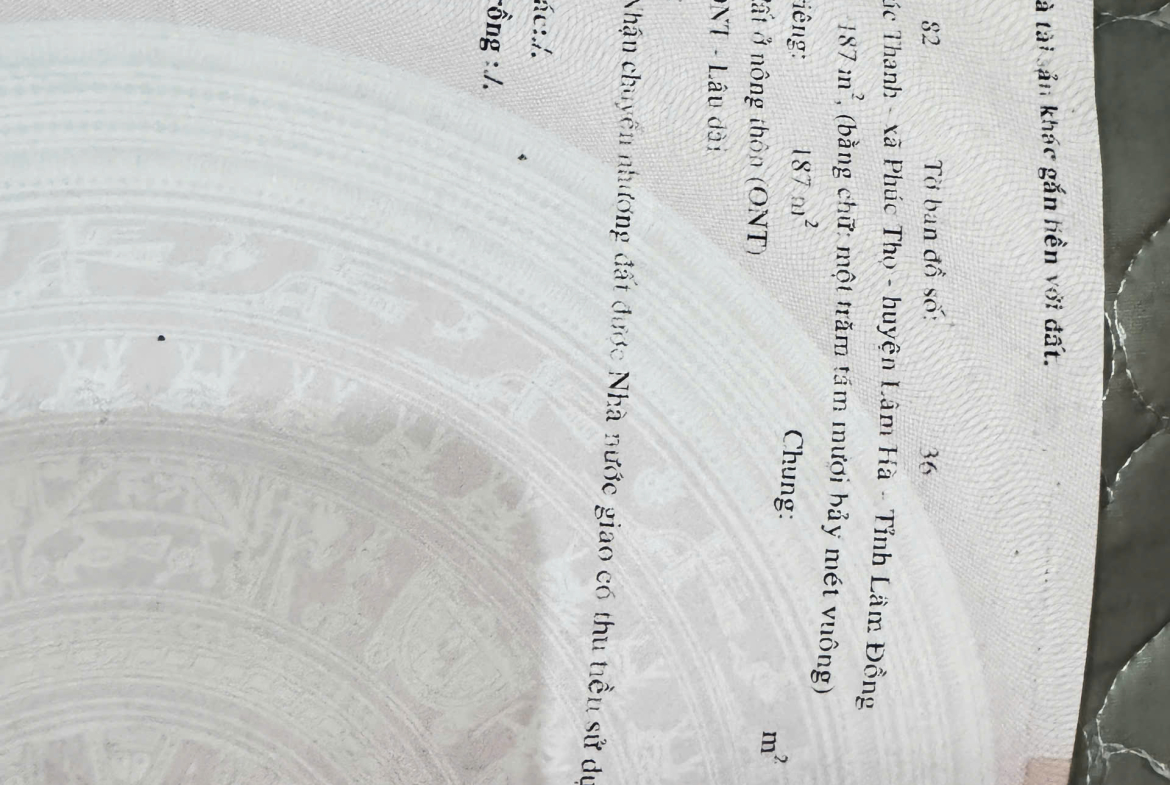 à tài sản khác gắn liền với đất.
82 Tờ bản đồ số: 36
úc Thanh - xã Phúc Thọ - huyện Lâm Hà - Tỉnh Lâm Đồng
187 m², (bằng chữ: một trăm tám mươi bảy mét vuông)
riêng: 187 m² Chung: m²
đất ở nông thôn (ONT)
ONT - Lâu dài
Nhận chuyển nhượng đất được Nhà nước giao có thu tiền sử dụ
ác:./.
rồng :./.